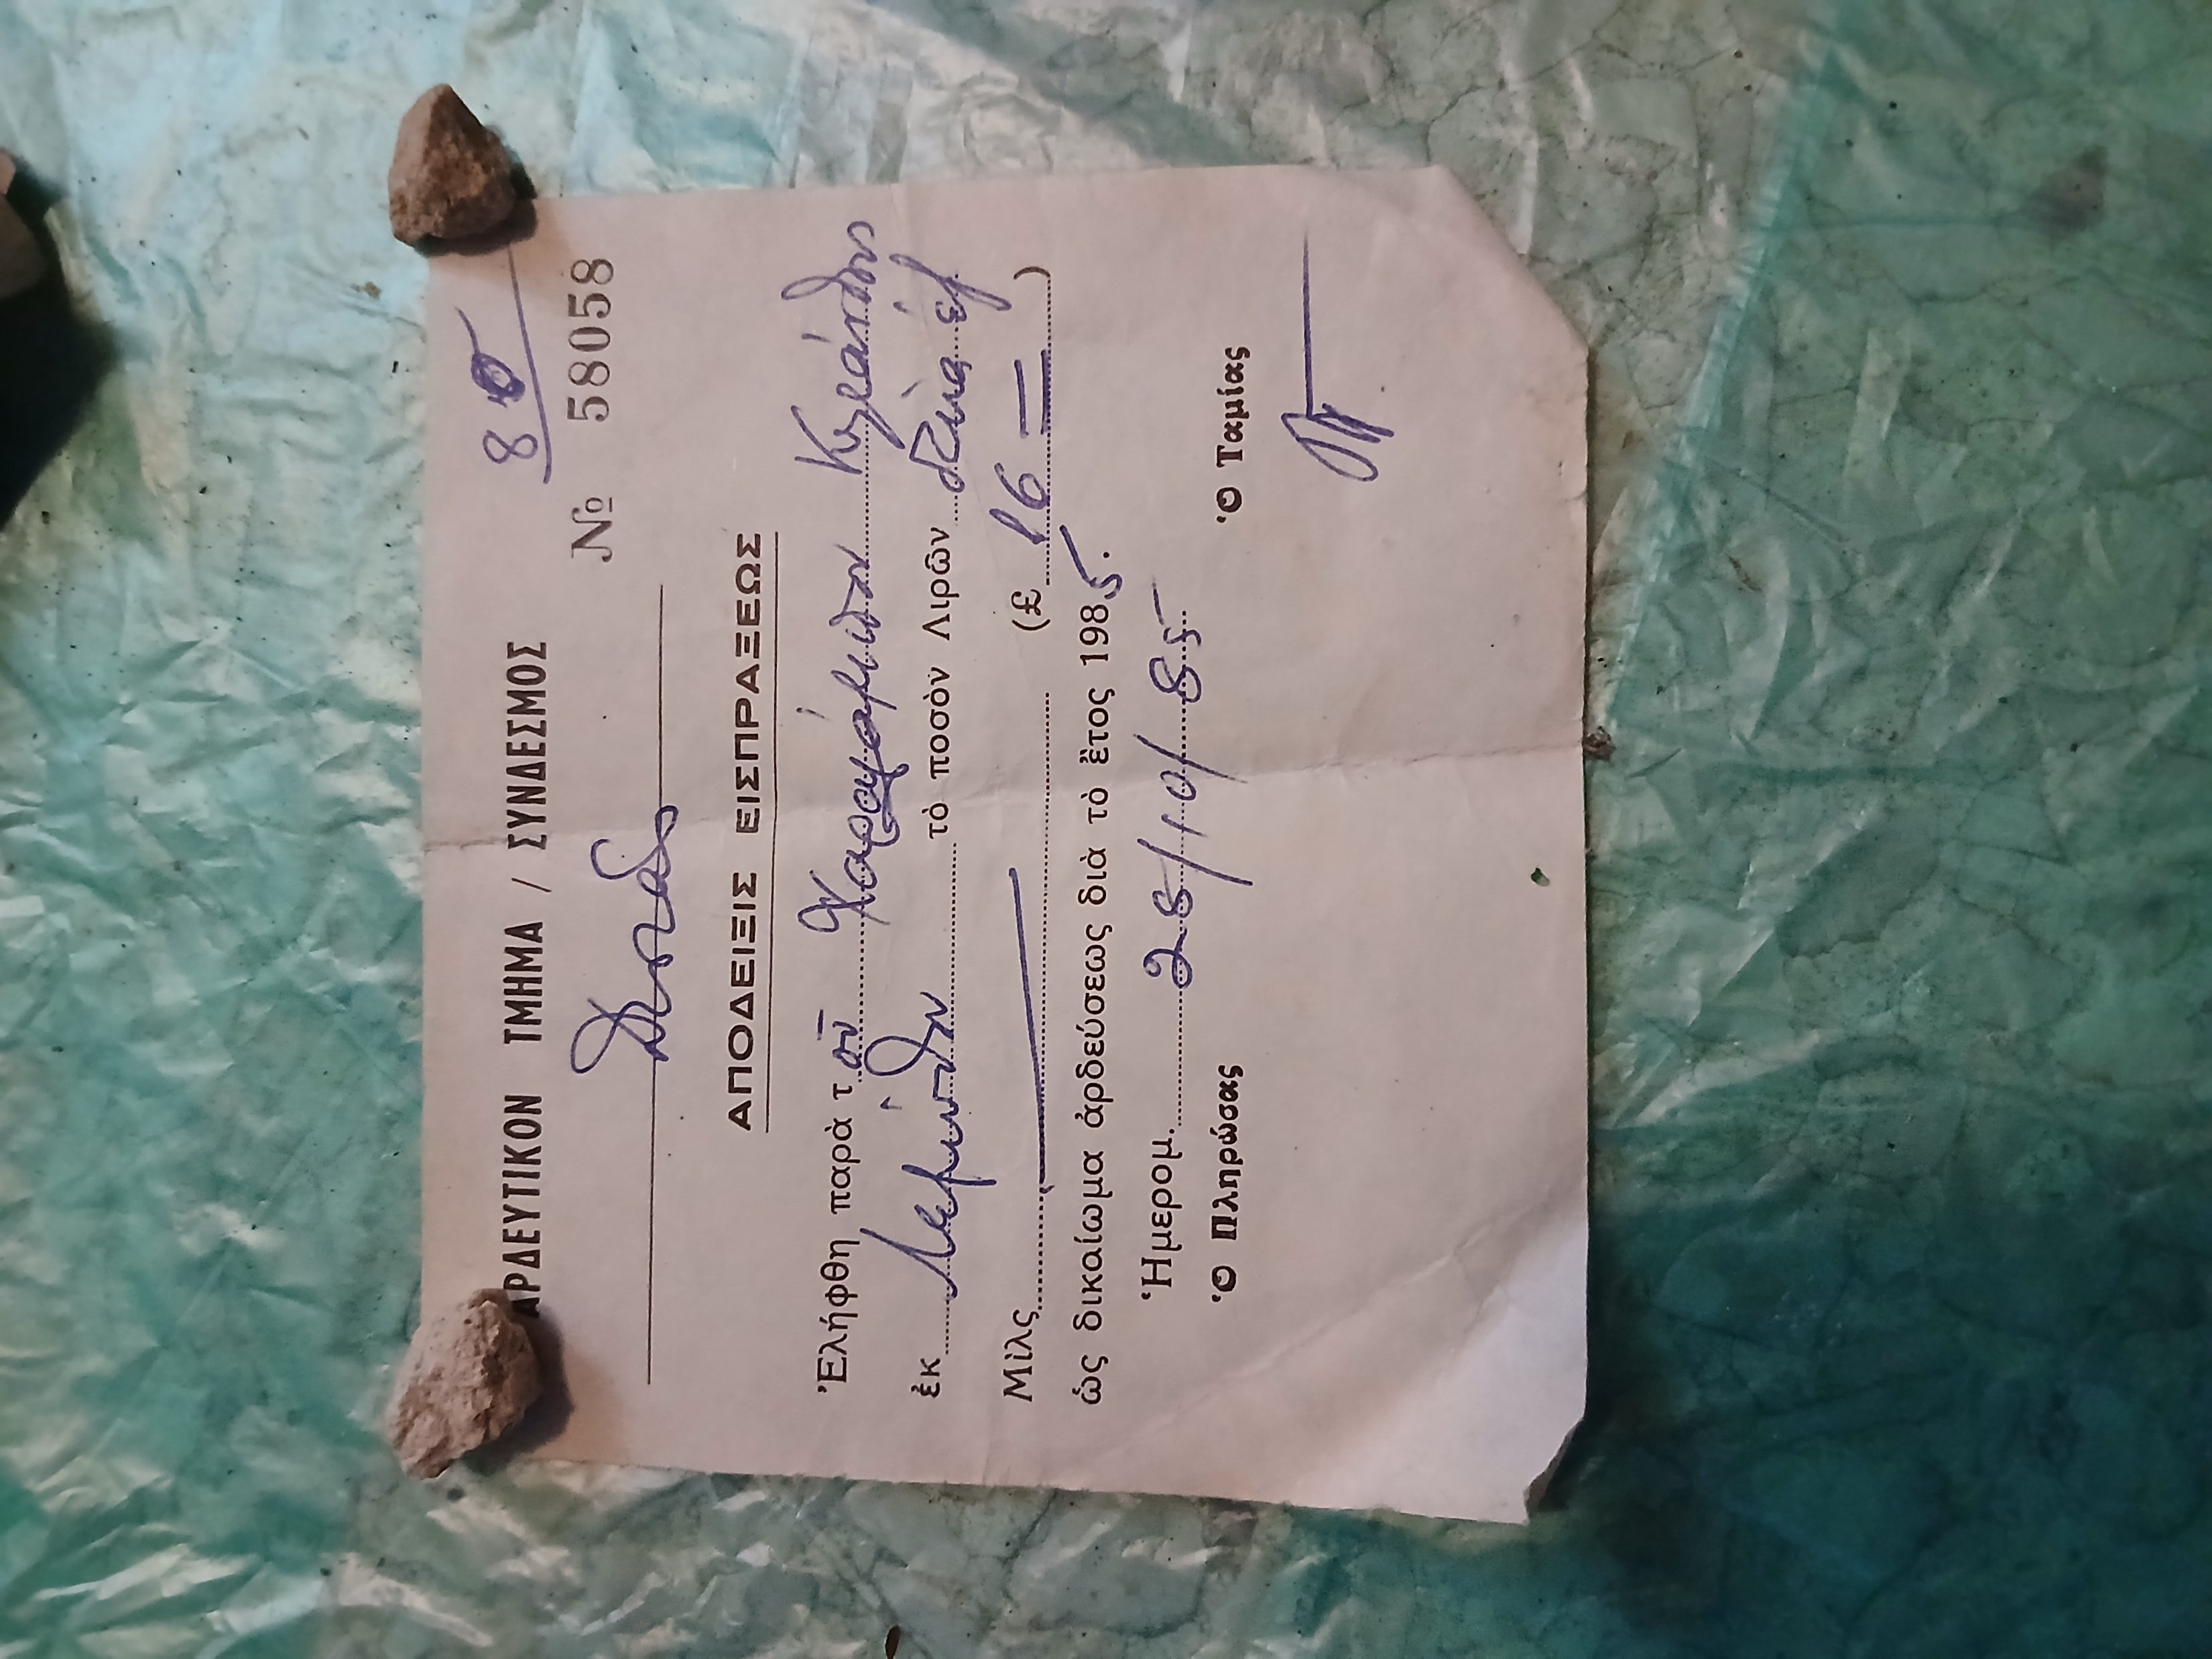 8
ΑΡΔΕΥΤΙΚΟΝ ΤΜΗΜΑ / ΣΥΝΔΕΣΜΟΣ
№ 58058
ΑΠΟΔΕΙΞΙΣ ΕΙΣΠΡΑΞΕΩΣ
Ἐλήφθη παρὰ τοῦ Χαραλάμπου Κλεάνθους
ἐκ τὸ ποσὸν Λιρῶν Δέκα ἕξ
Μίλς (£ 16 = )
ὡς δικαίωμα ἀρδεύσεως διὰ τὸ ἔτος 1985.
Ἡμερομ. 28/10/85
Ὁ Πληρώσας Ὁ Ταμίας